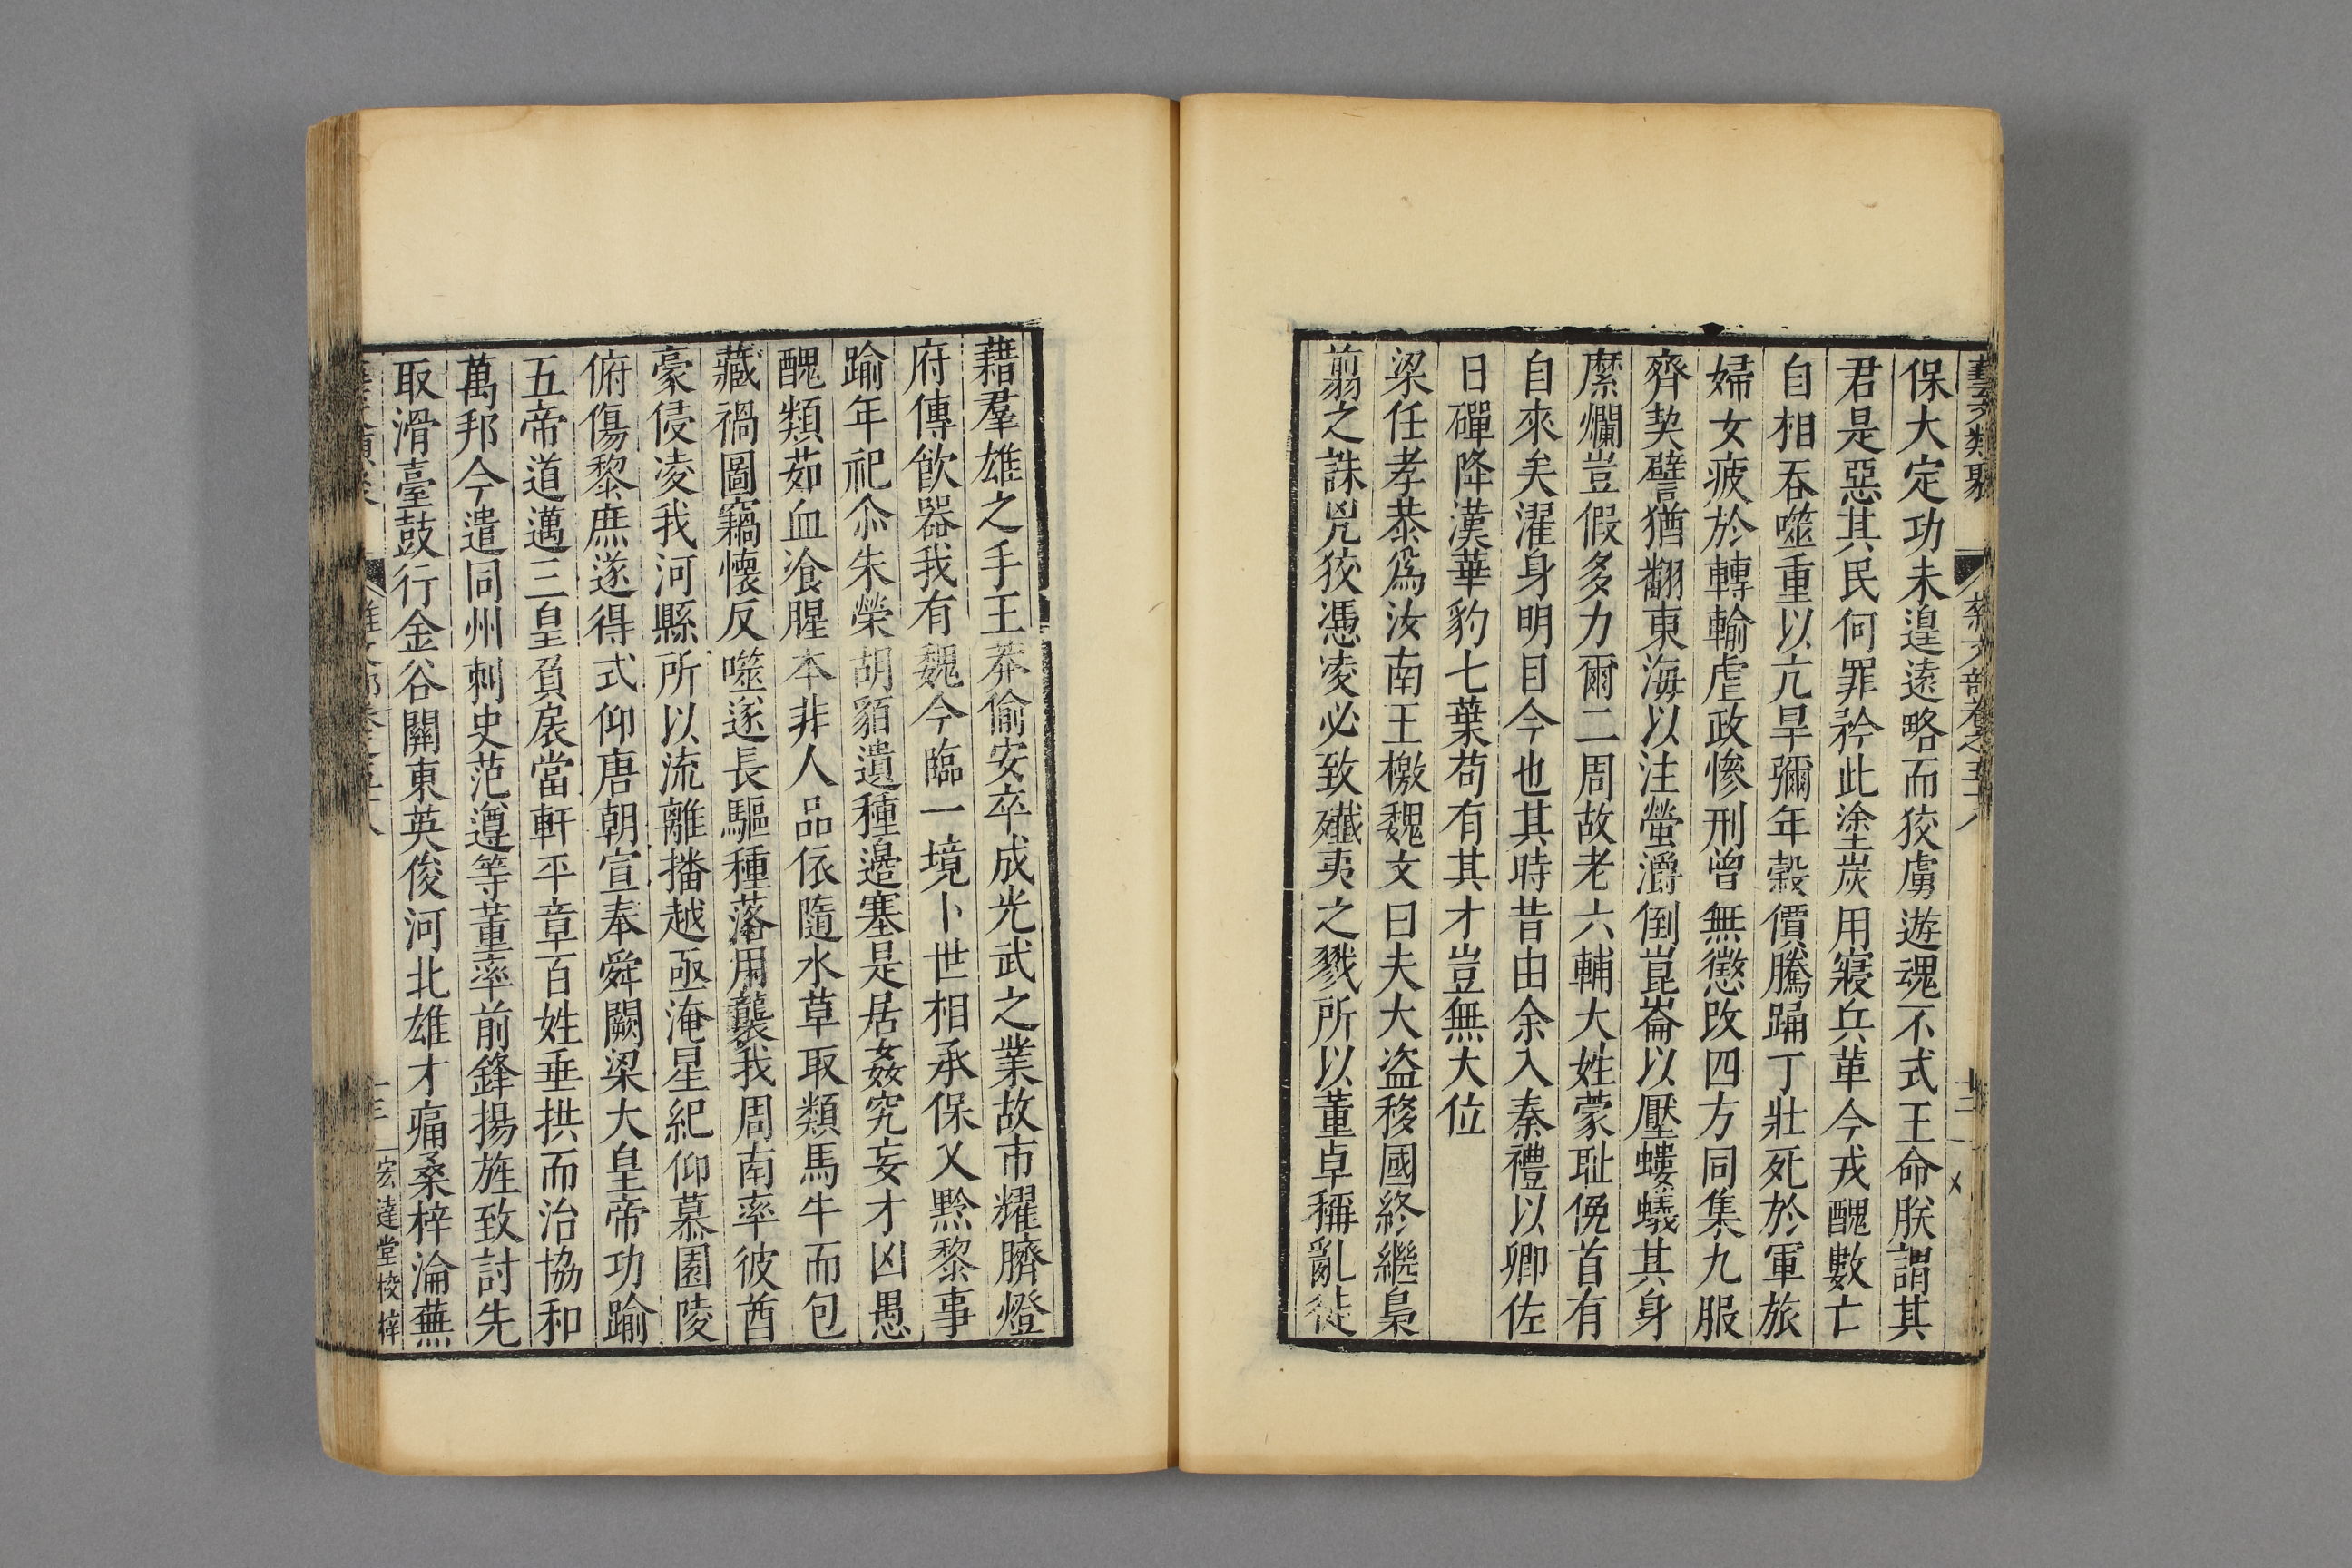 藝文類聚 雜文部卷之五十八 十二
保大定功未遑遠略而狡虜遊魂不式王命朕謂其
君是惡其民何罪矜此塗炭用寢兵革今戎醜數亡
自相吞噬重以亢旱彌年穀價騰踊丁壯死於軍旅
婦女疲於轉輸虐政慘刑曾無懲改四方同集九服
齊契譬猶翻東海以注螢爝倒崑崙以壓螻蟻其身
縻爛豈假多力爾二周故老六輔大姓蒙耻俛首有
自來矣濯身明目今也其時昔由余入秦禮以卿佐
日磾降漢華豹七葉苟有其才豈無大位
梁任孝恭爲汝南王檄魏文曰夫大盜移國終繼梟
翦之誅兇狡憑凌必致殲夷之戮所以董卓稱亂徒
藉羣雄之手王莽偷安卒成光武之業故市耀臍燈
府傳飲器我有魏今臨一境卜世相承保乂黔黎事
踰年祀尒朱榮胡貊遺種邊塞是居姦宄妄才凶愚
醜類茹血飡腥本非人品依隨水草取類馬牛而包
藏禍圖竊懷反噬逐長驅種落用襲我周南率彼酋
豪侵凌我河縣所以流離播越亟淹星紀仰慕園陵
俯傷黎庶遂得式仰唐朝宣奉舜闕梁大皇帝功踰
五帝道邁三皇負扆當軒平章百姓垂拱而治協和
萬邦今遣同州刺史范遵等董率前鋒揚旌致討先
取滑臺鼓行金谷關東英俊河北雄才痛桑梓淪蕪
雜文部卷之五十八 十三 宏達堂校梓